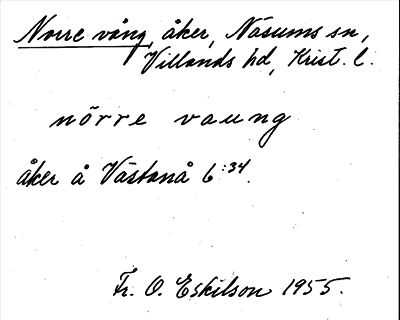 Norre vång, åker, Näsums sn,
Villands hd, Krist. l.
nörre vaung
åker å Västanå 6:34.
Fr. O. Eskilson 1955.